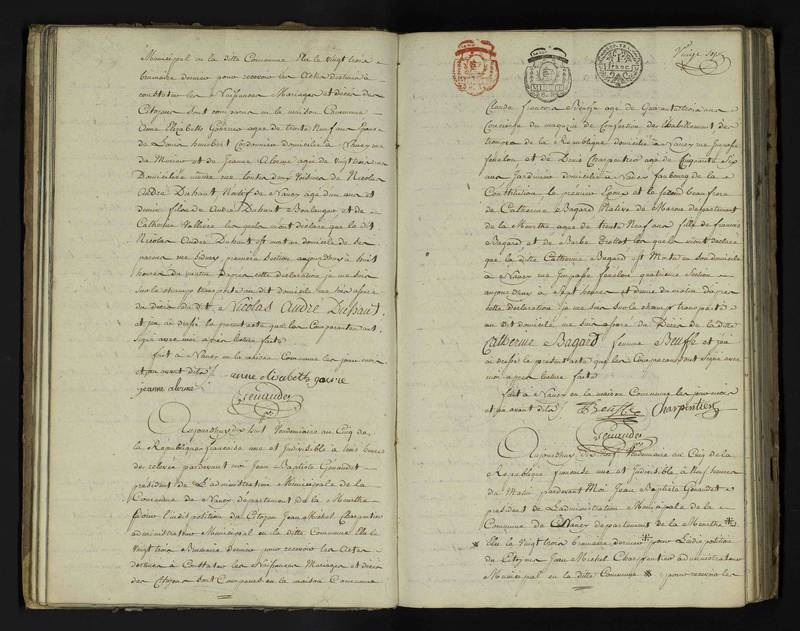 Municipal en la ditte Commune Elu le vingt trois
brumaire dernier pour recevoir les Actes destinés à
constater les Naissances Mariages et décès des
Citoyens Sont comparus en la maison Commune
Anne Elizabette agée de trente Neuf ans
de Louis humbert Cordonnier domiciliée à Nancy rue
du et de Jeanne agée de vingt trois ans
Domiciliée même rue toutes deux Voisines de Nicolas
André Duhaut Natif de Nancy âgé d'un an et
demie fils de André Duhaut Boulanger et de
Catherine les quels m'ont déclaré que le dit
Nicolas André Duhaut est mort au domicile de ses
première Section aujourd'hui à huit
heures du matin D'après cette déclaration je me suis
sur le champ transporté au dit domicile me suis assuré
du décès du dit Nicolas André Duhaut
et j'ai dressé le présent acte que les Comparentes ont
signé avec moi après lecture faite
fait à Nancy en la maison Commune les jour mois
et an avant dits anne elisabeth
jeanne
Aujourd'huy dix huit Vendemiaire au Cinq de
la Republique française une et Indivisible à trois heures
de relevée pardevant moi Jean Baptiste
président de L'administration Municipale de la
Commune de Nancy département de la Meurthe
Pour l'indisposition du Citoyen Jean Michel Charpentier
administrateur Municipal en la ditte Commune Elu le
vingt trois Brumaire dernier pour recevoir les Actes
destinés à Constater les Naissances Mariages et décès
des Citoyens Sont Comparus en la maison Commune
Claude françois agé de Quarante trois ans
Concierge du magazin de Confection de l'habillement des
troupes de la Republique domicilié à Nancy
fenelon et de Denis Charpentier agé de Cinquante Six
ans Jardinier domicilié à Nancy faubourg de la
Constitution le premier Epoux et le second beau frere
de Catherine Bagard Native de département
de la Meurthe agée de trente Neuf ans fille de francois
Bagard et de Barbe les quels m'ont declaré
que la ditte Catherine Bagard est Morte en son domicile
à Nancy fenelon quatrieme Section
aujourd'huy à Sept heures et demie du matin d'après
cette déclaration je me suis sur le champ transporté
au dit domicile, me suis assuré du Décès de la ditte
Catherine Bagard femme et j'ai
dressé le présent acte que les Comparans ont Signé avec
moi après lecture faite
fait à Nancy en la maison Commune les jour mois
et an avant dits Charpentier
Aujourd'huy Dix Neuf Vendemiaire au Cinq de la
Republique française une et Indivisible à Neuf heures
du Matin pardevant Moi Jean Baptiste
président de L'administration Municipale de la
Commune de Nancy département de la Meurthe *
* Elu le vingt trois brumaire dernier * pour L'indisposition
du Citoyen Jean Michel Charpentier administrateur
Municipal en la ditte Commune * pour recevoir les